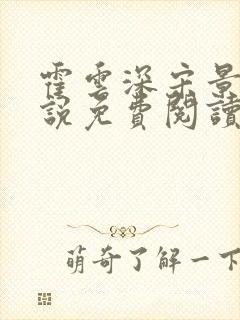 霍雲深宗景
說免費閱讀
萌奇了解一下